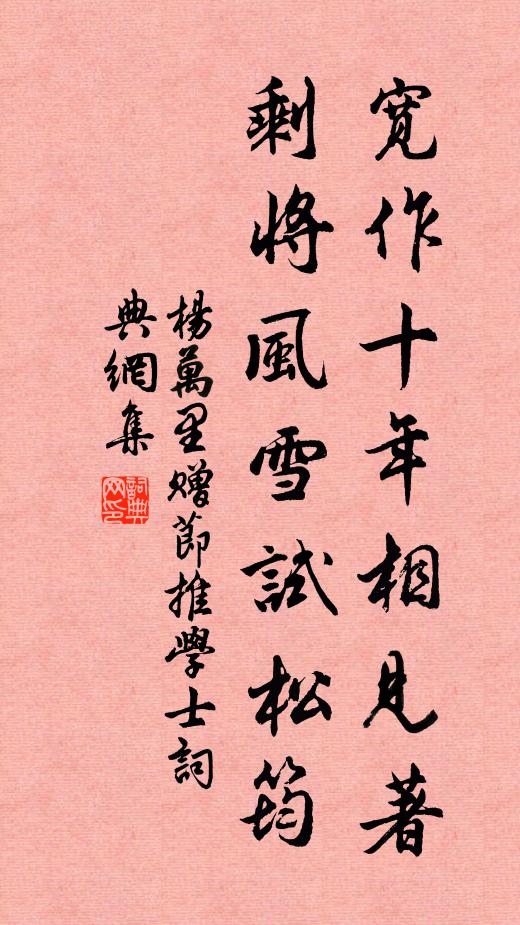 寬作十年相見著
剩將風雪試松筠
楊萬里贈節推學士詞
典網集
詞典
网印